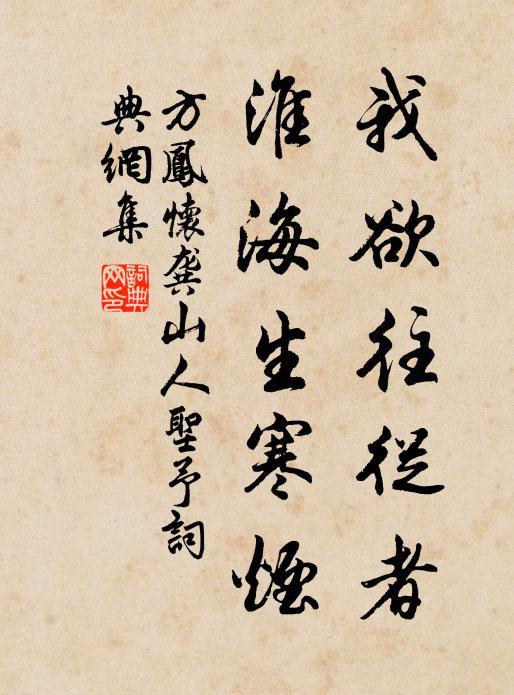 我欲往從者
淮海生寒煙
方鳳懷龔山人聖予詞
典網集
詞典網印